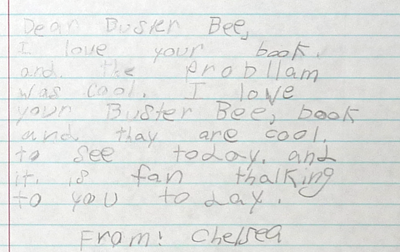 Dear Buster Bee,
I love your book.
and. the probllam
was cool. I love
your Buster Bee, book
and thay are cool.
to see today. and
it is fan thalking
to you to day.
From: Chelsea